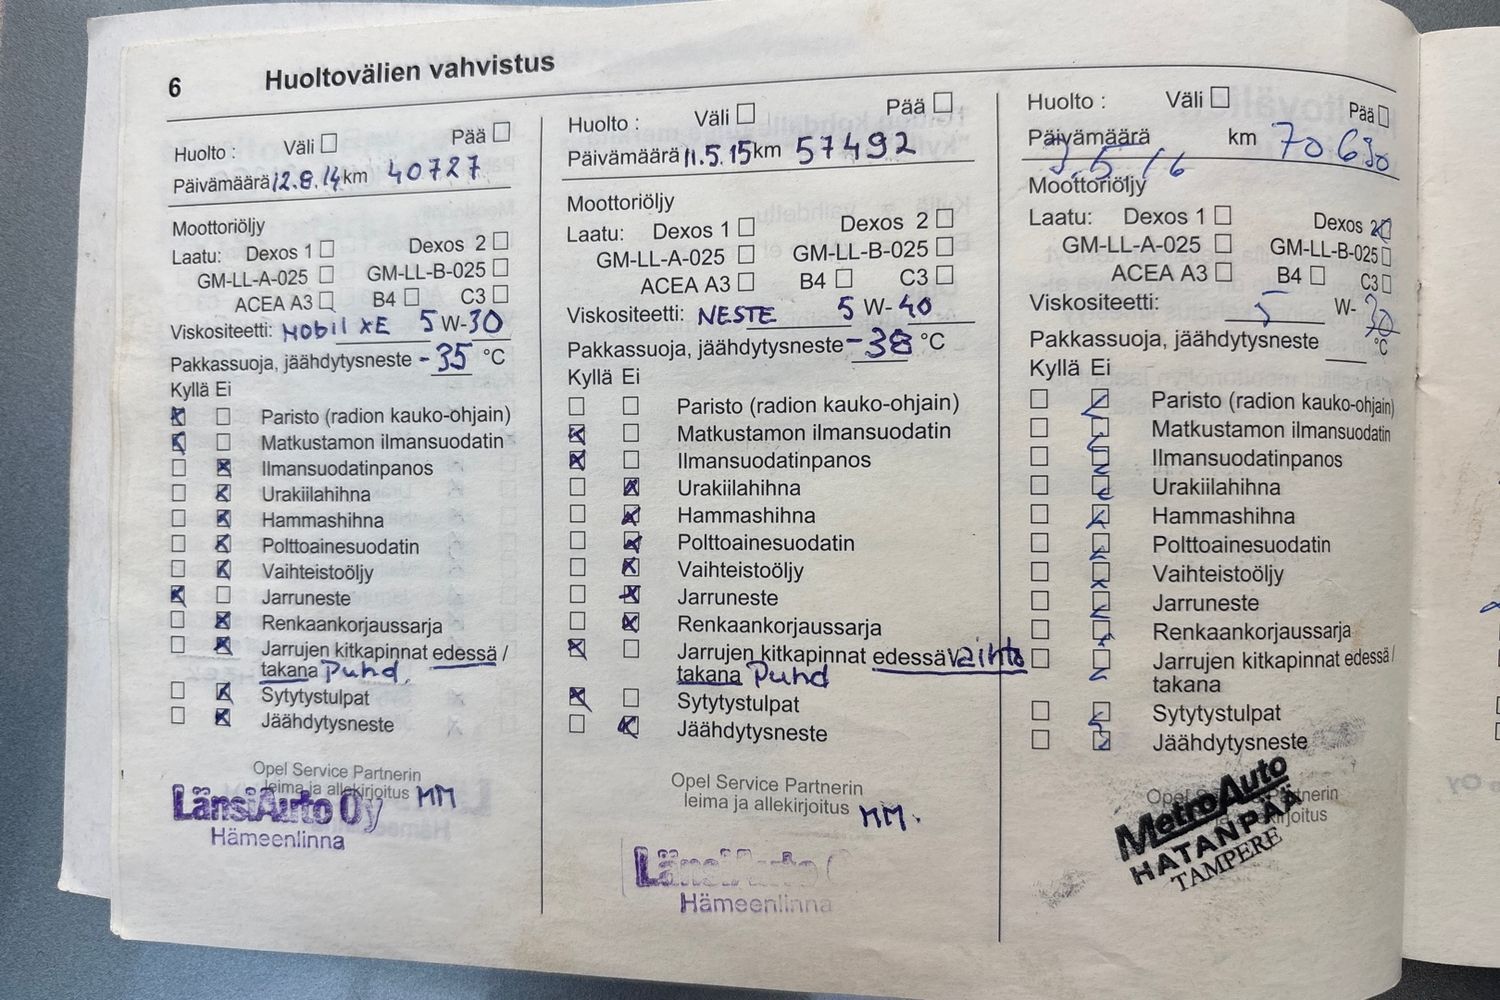 6 Huoltovälien vahvistus
Huolto : Väli Pää
Päivämäärä 12.8.14 km 40727
Moottoriöljy
Laatu: Dexos 1 Dexos 2
GM-LL-A-025 GM-LL-B-025
ACEA A3 B4 C3
Viskositeetti: Mobil XE 5 W-30
Pakkassuoja, jäähdytysneste -35 °C
Kyllä Ei
Paristo (radion kauko-ohjain)
Matkustamon ilmansuodatin
Ilmansuodatinpanos
Urakiilahihna
Hammashihna
Polttoainesuodatin
Vaihteistoöljy
Jarruneste
Renkaankorjaussarja
Jarrujen kitkapinnat edessä /
takana Puhd.
Sytytystulpat
Jäähdytysneste
Opel Service Partnerin
leima ja allekirjoitus MM
LänsiAuto Oy
Hämeenlinna
Huolto : Väli Pää
Päivämäärä 11.5.15 km 57492
Moottoriöljy
Laatu: Dexos 1 Dexos 2
GM-LL-A-025 GM-LL-B-025
ACEA A3 B4 C3
Viskositeetti: NESTE 5 W-40
Pakkassuoja, jäähdytysneste -38 °C
Kyllä Ei
Paristo (radion kauko-ohjain)
Matkustamon ilmansuodatin
Ilmansuodatinpanos
Urakiilahihna
Hammashihna
Polttoainesuodatin
Vaihteistoöljy
Jarruneste
Renkaankorjaussarja
Jarrujen kitkapinnat edessä vaihto
takana Puhd
Sytytystulpat
Jäähdytysneste
Opel Service Partnerin
leima ja allekirjoitus MM.
LänsiAuto
Hämeenlinna
Huolto : Väli Pää
Päivämäärä km 70630
Moottoriöljy
Laatu: Dexos 1 Dexos 2
GM-LL-A-025 GM-LL-B-025
ACEA A3 B4 C3
Viskositeetti: 5 W-30
Pakkassuoja, jäähdytysneste °C
Kyllä Ei
Paristo (radion kauko-ohjain)
Matkustamon ilmansuodatin
Ilmansuodatinpanos
Urakiilahihna
Hammashihna
Polttoainesuodatin
Vaihteistoöljy
Jarruneste
Renkaankorjaussarja
Jarrujen kitkapinnat edessä /
takana
Sytytystulpat
Jäähdytysneste
MetroAuto
HATANPÄÄ
TAMPERE